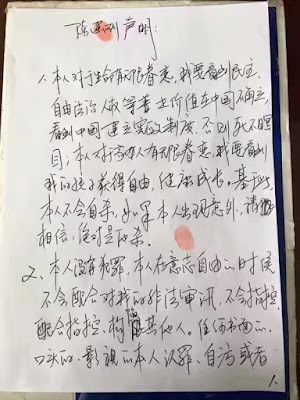 陈建刚声明:
1、本人对于生命有无限眷恋,我要看到民主、
自由法治人权等普世价值在中国确立,
看到中国建立宪政制度,否则死不瞑
目;本人对于家人有无限眷恋,我要看到
我的孩子获得自由、健康成长。基于此,
本人不会自杀,如果本人出现意外,请你
相信,绝对是他杀。
2、本人没有犯罪,本人在意志自由的时候
不会配合对我的非法审讯,不会指控、
配合指控、构陷其他人。任何书面的、
口头的、影视的本人认罪、自污或者
1.